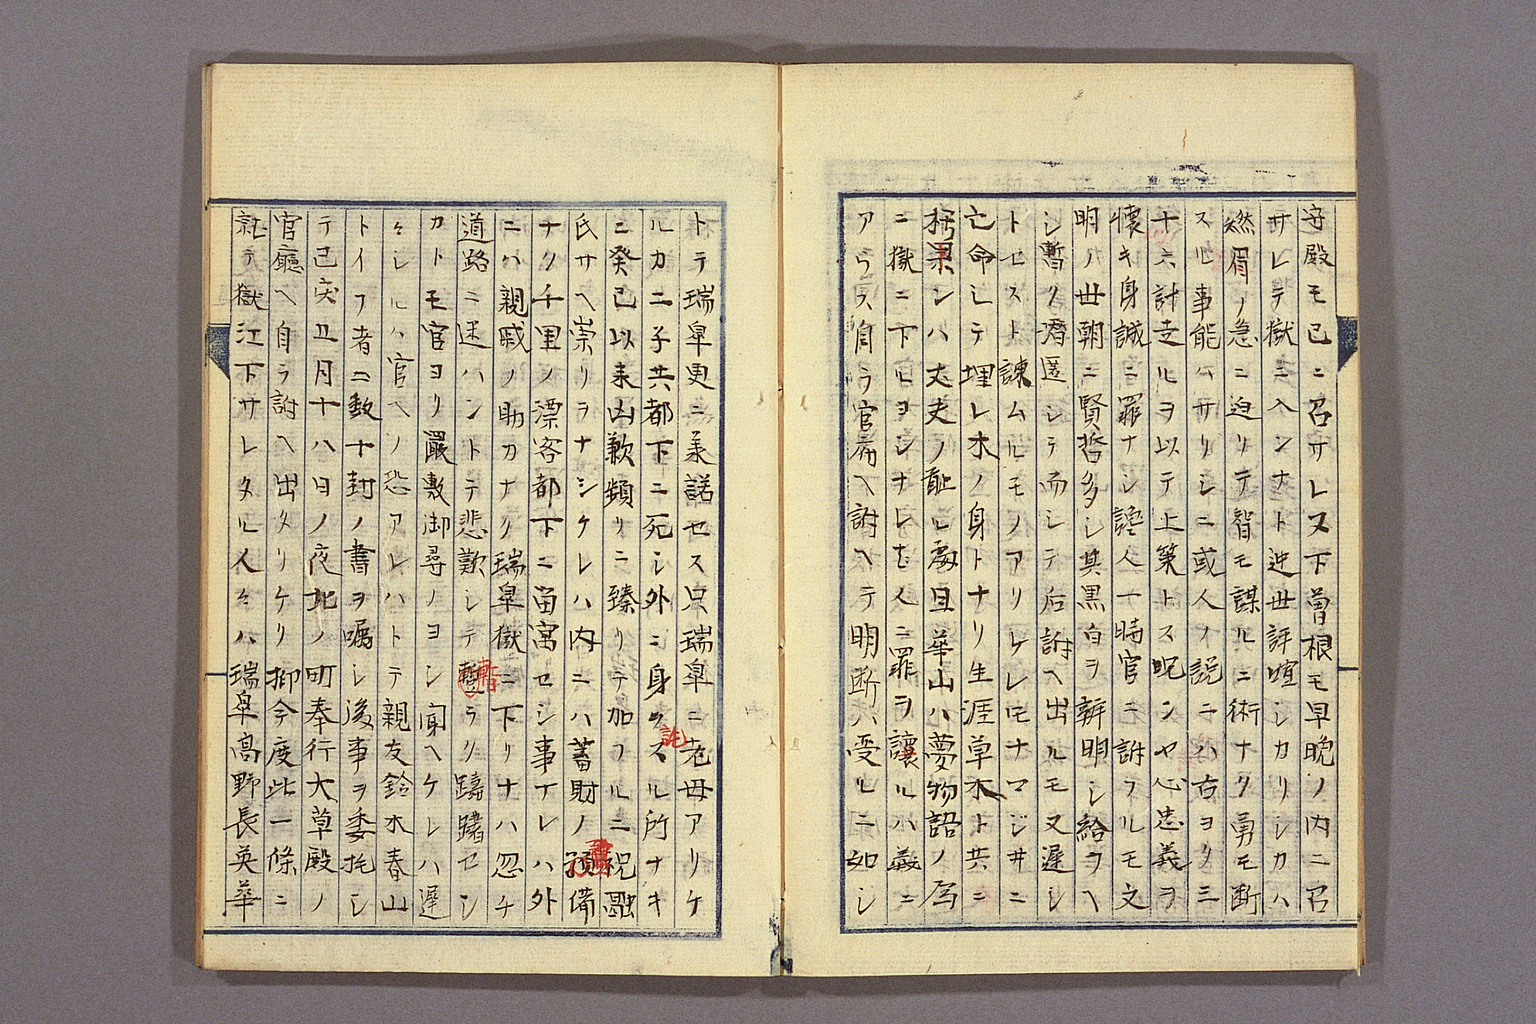 守殿モ已ニ召サレ又下曽根モ早晩ノ内ニ召
サレテ獄ニ入ンナト迚世評喧シカリシカハ
燃眉ノ急ニ迫リテ智モ謀ルニ術ナク勇モ断
スル事能ハサリシニ或人ノ説ニハ古ヨリ三
十六計走ルヲ以テ上策トス呪ンヤ心忠義ヲ
懐キ身誠ニ罪ナシ讒人一時官ニ訴フルモ文
明ノ世朝ニ賢哲多シ其黒白ヲ辨明シ給ヲヘ
シ暫ク潛匿シテ而シテ后訴ヘ出ルモ又遅シ
トセスト諫ムルモノアリケレ𪜈ナマジヰニ
亡命シテ埋レ木ノ身トナリ生涯草木ト共ニ
枯果ンハ丈夫ノ耻ル處且華山ハ夢物語ノ為
ニ獄ニ下ルヲシナレは人ニ罪ヲ譲ルハ義ニ
アラス自ラ官府ヘ訴ヘテ明断ハ受ルニ如シ
トテ瑞皐更ニ美諾セス只瑞皐ニ老母アリケ
ルカ二子共都下ニ死シ外ニ身ヲ託スル所ナキ
ニ癸已以来凶歉頻リニ臻リテ加フルニ祝融
氏サヘ崇リヲナシケレハ内ニハ蓄財ノ預備
ナク千里ノ漂客都下ニ畄寓セシ事ナレハ外
ニハ親戚ノ助力ナク瑞皐獄ニ下リナハ忽チ
道路ニ迷ハントテ悲歎シテ暫クラリ躊躇セシ
カトモ官ヨリ嚴敷御尋ノヨシ聞ヘケレハ遅
々シルハ官ヘノ恐アレハトテ親友鈴木春山
トイフ者ニ数十封ノ書ヲ嘱シ後事ヲ委托シ
テ己亥五月十八日ノ夜北ノ町奉行大草殿ノ
官廳ヘ自ラ訴ヘ出タリケリ抑今度此一條ニ
就テ獄江下サレタル人々ハ瑞皐高野長英華